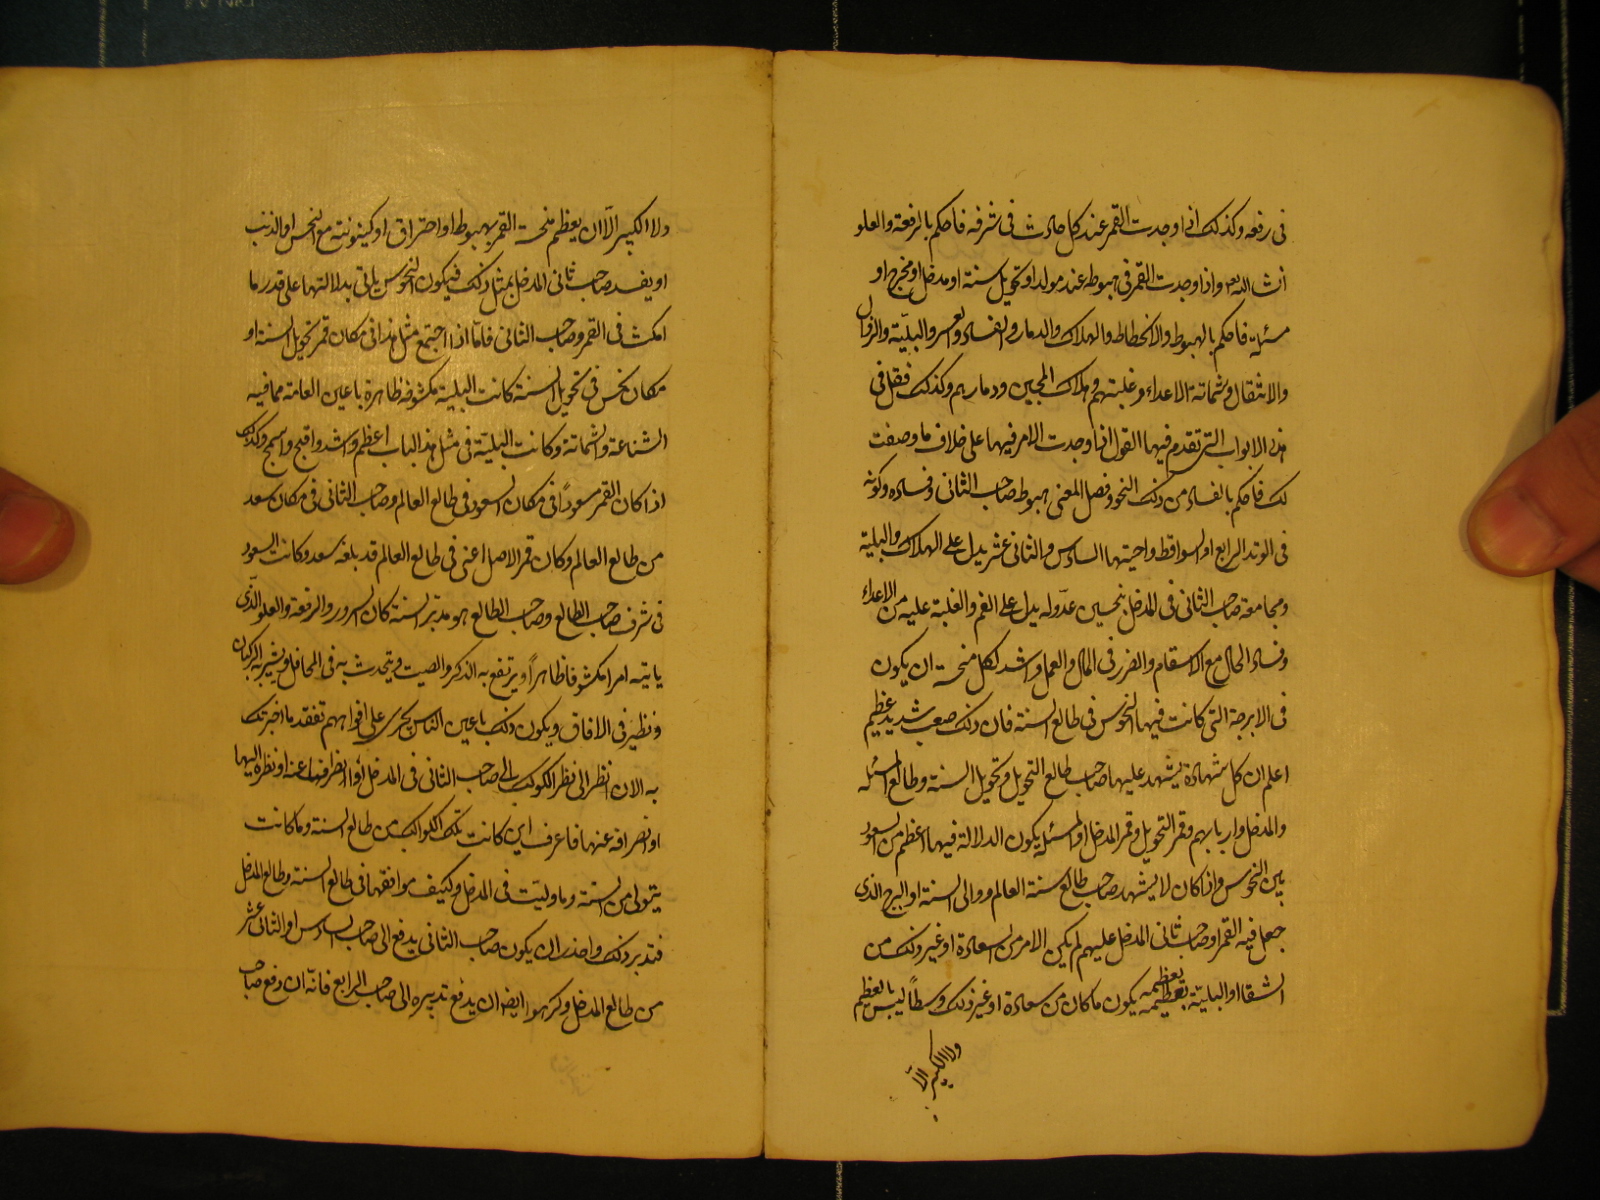 فى رفعه وكذلك اذا وجدت القمر عند كل حادث فى شرفه فاحكم بالرفعة والعلو
ان شا الله وم واذا وجدت القمر فى هبوطه عند مولد او تحويل سنة او مدخل او مخرج او
مسئلة فاحكم بالهبوط والانحطاط والهلاك والدمار والفساد والعسر والبليّة والزوال
والانتقال وشماتة الاعداء وغلبتهم وهلاك المحبين ودمارهم وكذلك فقل فى
هذه الابواب التى تقدم فيها القول اذا وجدت الامر فيها على خلاف ما وصفت
لك فاحكم بالفساد من ذلك النحو وفصل المعنى هبوط صاحب الثانى وفساده وكونه
فى الوتد الرابع او السواقط واخبتها السادس والثانى عشر يدل على الهلاك والبلية
ومجامعة صاحب الثانى فى المدخل بنحسين عدوّ له يدل على الغم والغلبة عليه من الاعداء
وفساد الحال مع الاسقام والضرر فى المال والعمل واشد لكل منحسة ان يكون
فى الابرجة التى كانت فيها النحوس فى طالع السنة فان ذلك صعب شديد عظيم
اعلم ان كل شهادة يشهد عليها صاحب طالع التحويل وتحويل السنة وطالع المسئلة
والمدخل واربابهم وقمر التحويل وقمر المدخل او المسئلة يكون الدلالة فيها اعظم من السعود
بين النحوس واذا كان لا يشهد صاحب طالع سنة العالم ووالى السنة او البرج الذى
جعل فيه القمر او صاحب ثانى المدخل عليهم لم يكن الامر من السعادة او غير ذلك من
الشقا او البلية بعظيمه يكون ما كان من سعادة او غير ذلك وسطاً ليس بالعظيم
بعظيمه
ولا الكبير الاّ
ولا الكبير الاّ ان يعظم منحسة القمر بهبوط او احتراق او كينونته مع النحس او الذنب
او يفسد صاحب ثانى المدخل بمثل ذلك فيكون النحوس ياتى بدلالتها على قدر ما
امكث فى القمر وصاحب الثانى فامّا اذا اجتمع مثل هذا فى مكان قمر تحويل السنة او
مكان نحس فى تحويل السنة كانت البلية مكشوفة ظاهرة باعين العامة مما فيه
الشناعة والشماتة وكانت البليّة فى مثل هذا الباب اعظم واشد واقبح واسمج وكذلك
اذا كان القمر مسعوداً فى مكان السعود فى طالع العالم وصاحب الثانى فى مكان سعد
من طالع العالم وكان قمر الاصل اعنى فى طالع العالم قد بلغه سعد وكانت السعود
فى شرف صاحب الطالع وصاحب الطالع هو مدبّر السنة كان السرور والرفعة والعلو الّذى
ياتيه امرا مكشوفا ظاهراً ويرتفع به الذكر والصيت ويتحدث به فى المحافل ويشير به الركبان
ونظير فى الافاق ويكون ذلك باعين الناس يجرى على افواههم تفقد ما اخبرتك
به الان انظر الى نظر الكوكب الى صاحب الثانى فى المدخل او انصرافها عنه او نظره اليها
او انصرافه عنها فاعرف اين كانت تلك الكواكب من طالع السنة وما كانت
يتولى من السنة وما وليت فى المدخل وكيف موافقها فى طالع السنة وطالع المدخل
فتدبر ذلك واحذر ان يكون صاحب الثانى يدفع الى صاحب السادس او الثانى عشر
من طالع المدخل وكرهوا ايضا ان يدفع تدبيره الى صاحب الرابع فانّه ان دفع صاحب